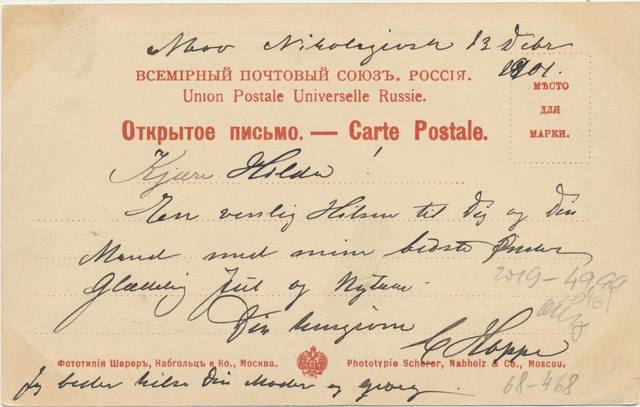 Nikolajevsk 13 Debr
1901.
ВСЕМІРНЫЙ ПОЧТОВЫЙ СОЮЗЪ. РОССІЯ.
Union Postale Universelle Russie.
МѢСТО
ДЛЯ
МАРКИ.
Открытое письмо. — Carte Postale.
Kjære Hilda!
En venlig Hilsen til Dig og Din
Mand med mine bedste Ønsker
Glædelig Jul og Nytaar
Din hengivne
C Hoppe
2019-49,99
Фототипія Шереръ, Набгольцъ и Ко., Москва.
Phototypie Scherer, Nabholz & Co., Moscou.
Jeg beder hilse Din Moder og Georg.
68-468